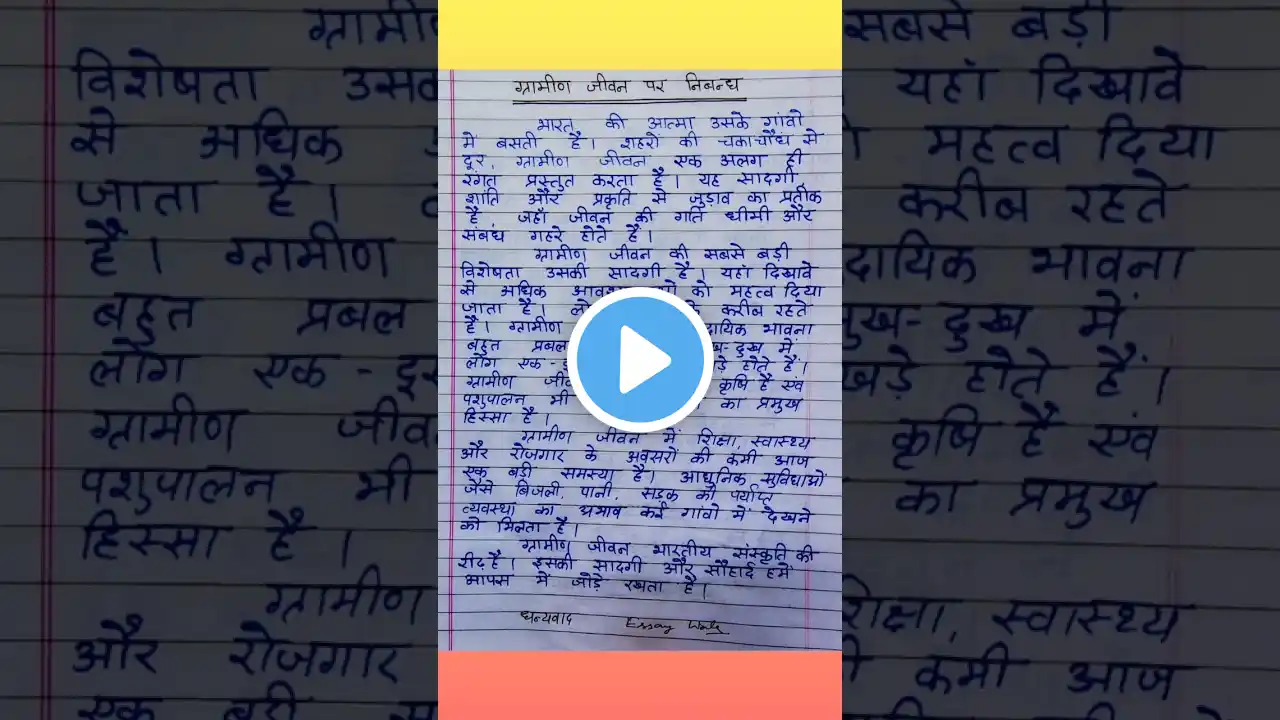 ग्रामीण जीवन पर निबन्ध
भारत की आत्मा उसके गांवो
में बसती है। शहरों की चकाचौंध से
दूर, ग्रामीण जीवन एक अलग ही
रंगत प्रस्तुत करता है। यह सादगी,
शांति और प्रकृति से जुड़ाव का प्रतीक
है, जहाँ जीवन की गति धीमी और
संबंध गहरे होते हैं।
ग्रामीण जीवन की सबसे बड़ी
विशेषता उसकी सादगी है। यहां दिखावे
से अधिक को महत्व दिया
जाता है। करीब रहते
हैं। ग्रामीण भावना
बहुत प्रबल दुख में
लोग एक - होते हैं।
ग्रामीण कृषि है एवं
पशुपालन भी का प्रमुख
हिस्सा है।
ग्रामीण जीवन में शिक्षा, स्वास्थ्य
और रोजगार के अवसरों की कमी आज
एक बड़ी समस्या है। आधुनिक सुविधाओं
जैसे बिजली, पानी, सड़क की पर्याप्त
व्यवस्था का अभाव कई गांवो में देखने
को मिलता है।
ग्रामीण जीवन भारतीय संस्कृति की
रीढ़ है। इसकी सादगी और सौहार्द हमें
आपस में जोड़े रखता है।
धन्यवाद Essay